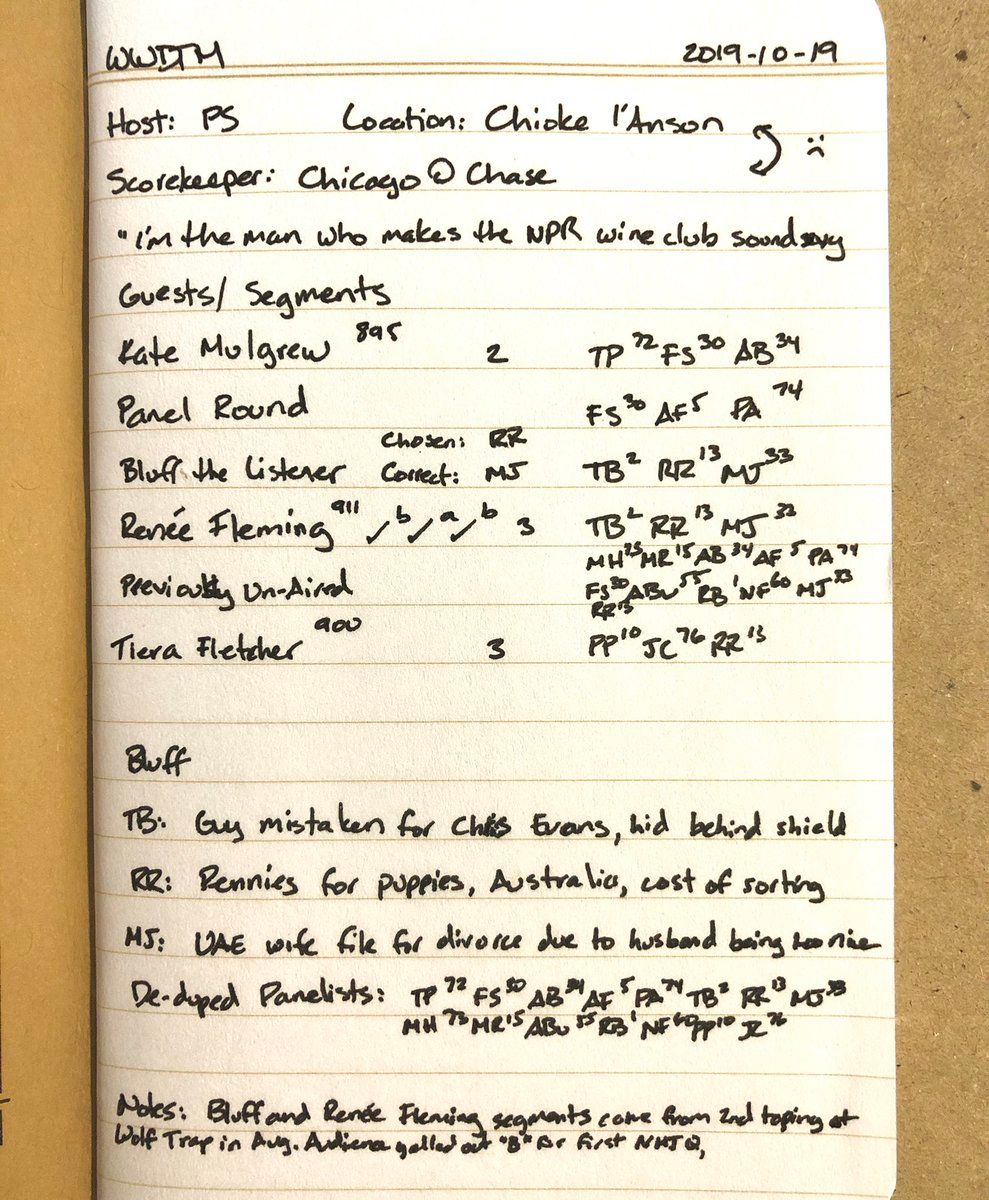 WWDTM 2019-10-19
Host: PS Location: Chioke I'Anson :(
Scorekeeper: Chicago @ Chase
"I'm the man who makes the NPR wine club sound sexy
Guests/Segments
Kate Mulgrew 895 2 TP 72 FS 30 AB 34
Panel Round FS 30 AF 5 PA 74
Chosen: RR
Bluff the Listener Correct: MJ TB 2 RR 13 MJ 33
Renée Fleming 911 ✓ b ✓ a ✓ b 3 TB 2 RR 13 MJ 33
MH 75 MR 15 AB 34 AF 5 PA 74
Previously Un-Aired FS 30 ABu 55 RB 1 NF 60 MJ 33
RR 13
Tiera Fletcher 900 3 PP 10 JC 76 RR 13
Bluff
TB: Guy mistaken for Chris Evans, hid behind shield
RR: Pennies for puppies, Australia, cost of sorting
MJ: UAE wife file for divorce due to husband being too nice
De-duped Panelists: TP 72 FS 30 AB 34 AF 5 PA 74 TB 2 RR 13 MJ 33
MH 75 MR 15 ABu 55 RB 1 NF 60 PP 10 JC 76
Notes: Bluff and Renée Fleming segments come from 2nd taping at
Wolf Trap in Aug. Audience yelled out "B" for first NMJ Q,